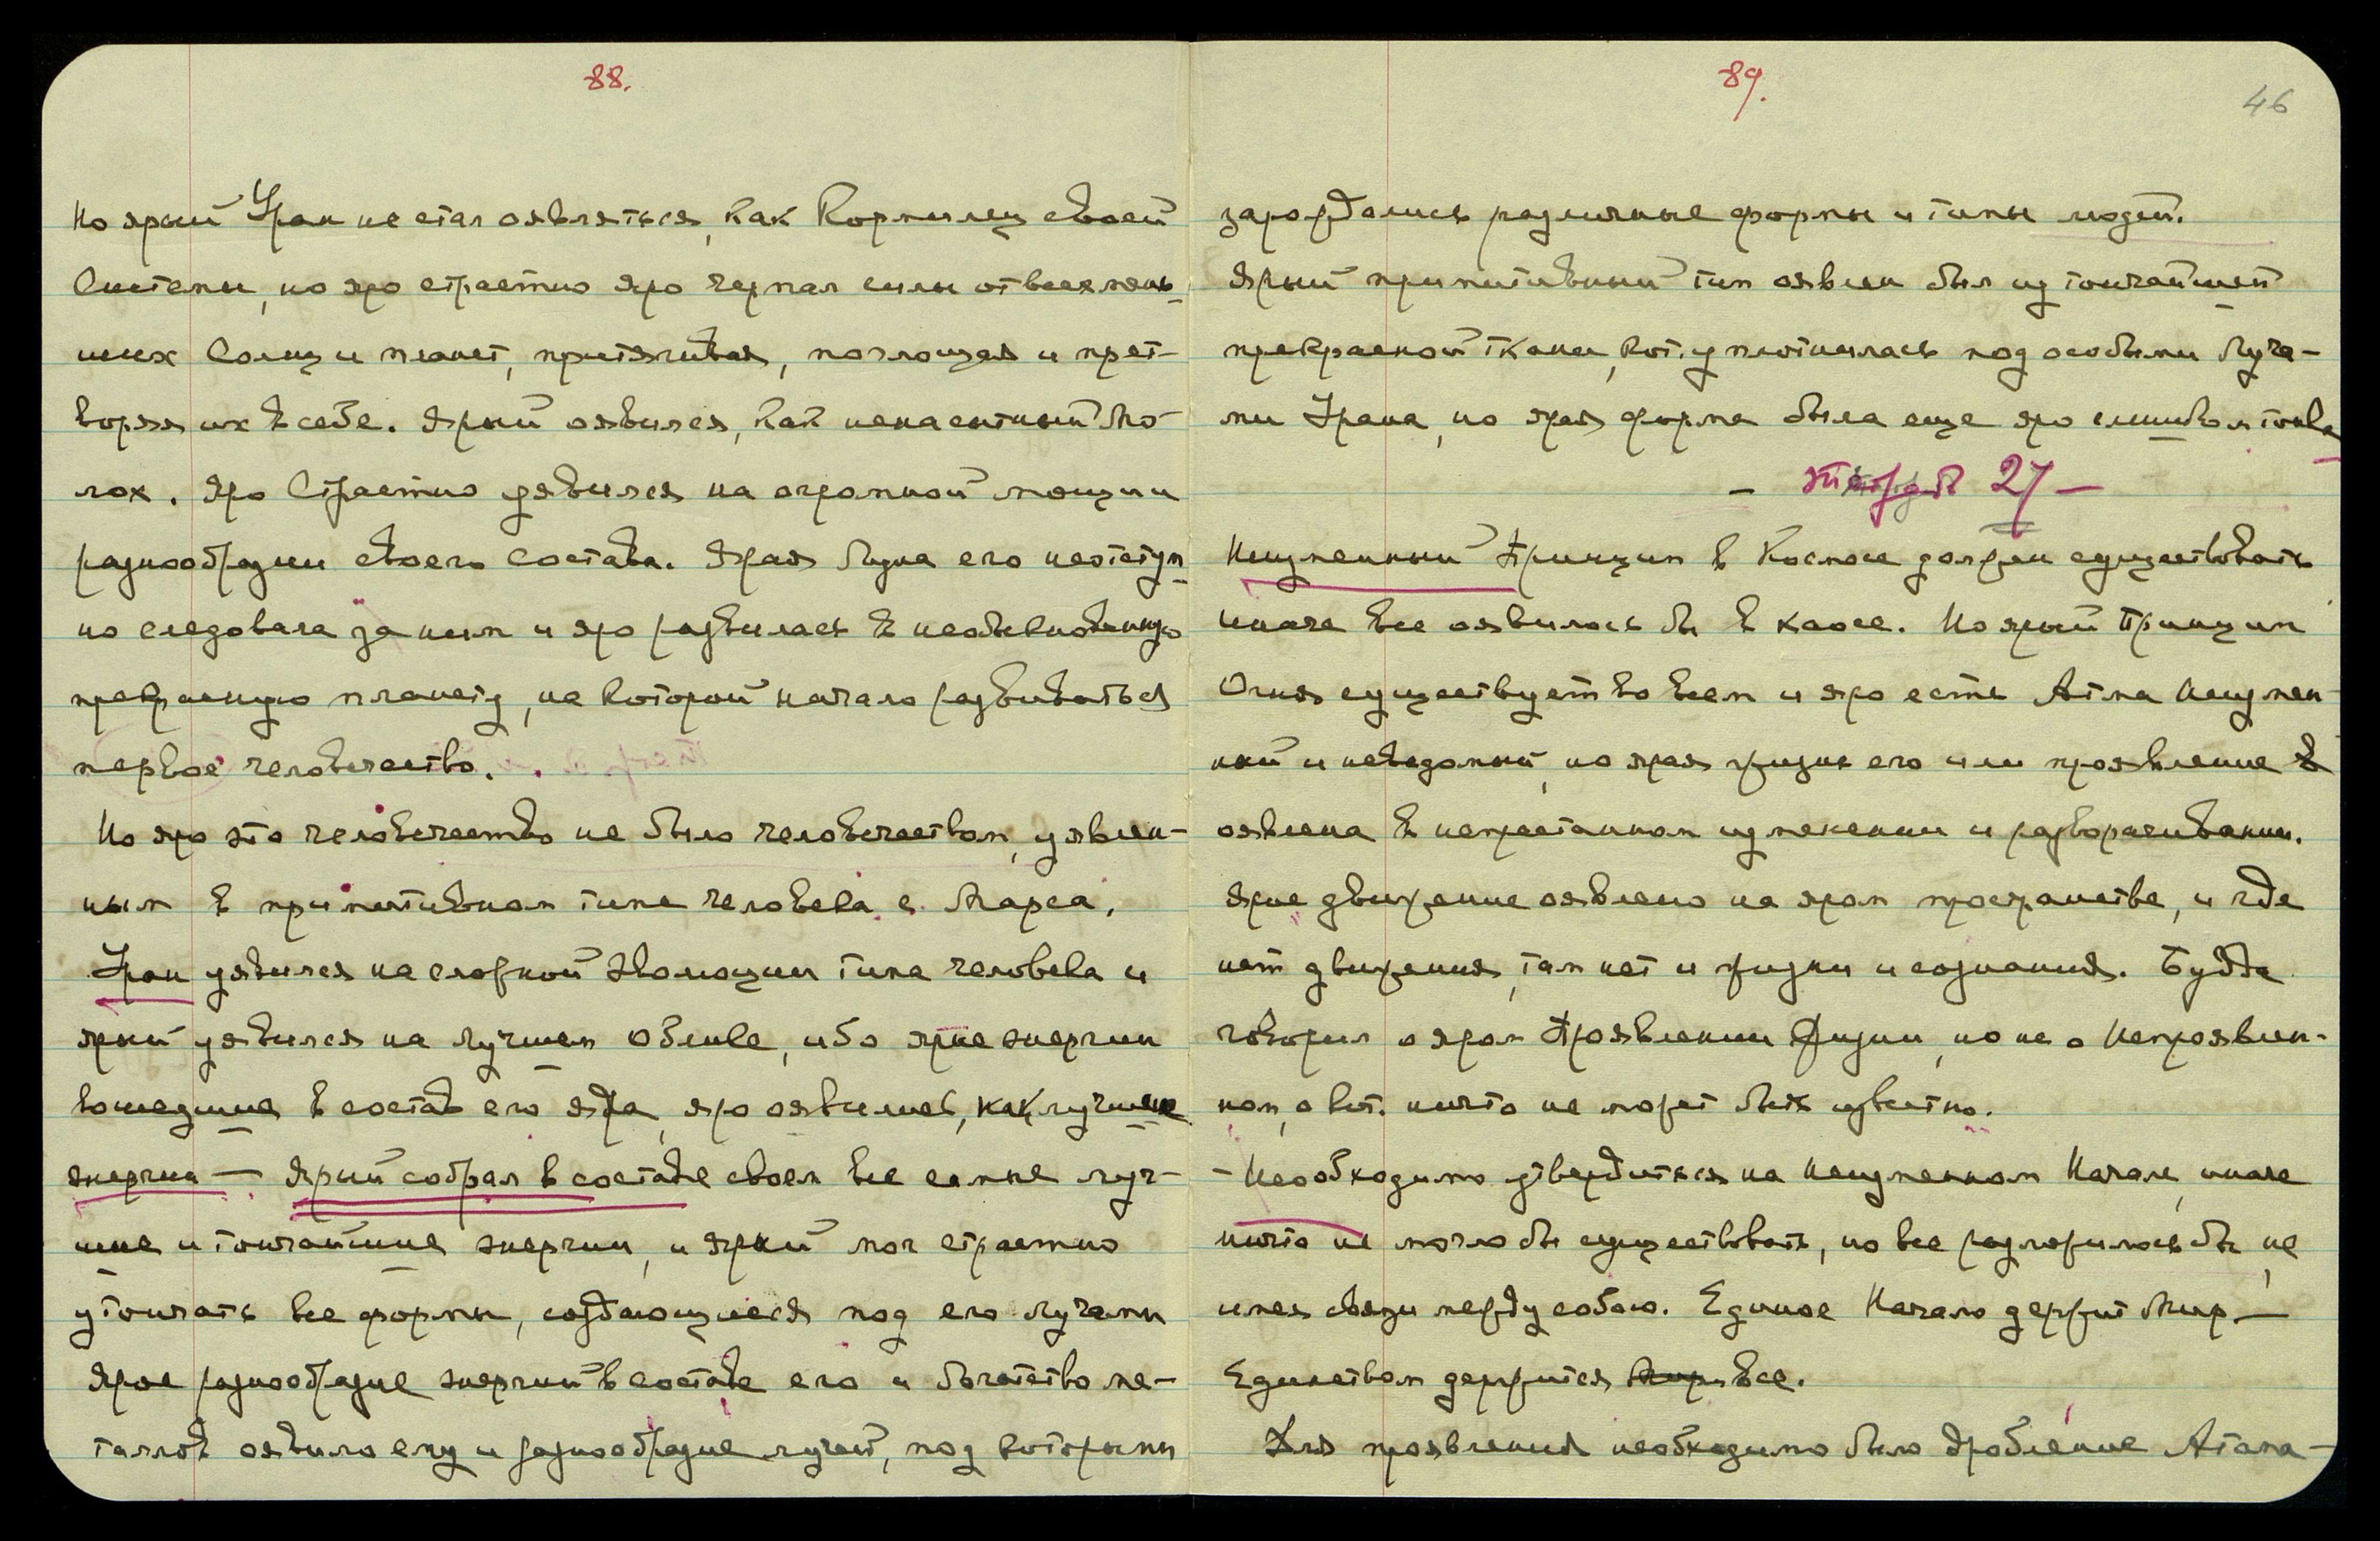 88.
Но ярый Уран не стал оявляться, как Кормилец своей
Системы, но яро страстно яро черпал силы от всех мень-
ших Солнц и планет, притягивая, поглощая и прет-
воряя их в себе. Ярый оявился, как ненасытный Мо-
лох. Яро Страстно уявился на огромной мощи и
разнообразии своего состава. Ярая Луна его неотступ-
но следовала за ним и яро развилась в необыкновенную
прекрасную планету, на которой начало развиваться
первое человечество.
Но яро это человечество не было человечеством, уявлен-
ным в примитивном типе человека с Марса.
Уран уявился на сложной эволюции типа человека и
ярый уявился на лучшем облике, ибо ярые энергии
вошедшие в состав его ядра, яро оявились, как лучшие
энергии — Ярый собрал в составе своем все самые луч-
шие и тончайшие энергии, и ярый мог страстно
утончать все формы, создающиеся под его лучами
Ярое разнообразие энергий в составе его и богатство ме-
таллов оявило ему и разнообразие лучей, под которыми
89.
46
зарождались различные формы и типы людей.
Ярый примитивный тип оявлен был из тончайшей
прекрасной ткани, кот. уплотнилась под особыми Луча-
ми Урана, но ярая форма была еще яро слишком тонка
— 27 —
Неизменный Принцип в Космосе должен существовать
иначе все оявилось бы в хаосе. Но ярый Принцип
Огня существует во всем и яро есть Атма Неизмен-
ный и неведомый, но ярая жизнь его или проявление
оявлена в непрестанном изменении и разворачивании.
Ярое движение оявлено на яром пространстве, и где
нет движения, там нет и жизни и сознания. Будда
говорил о яром Проявлении Жизни, но не о Непроявлен-
ном, о кот. ничто не может быть известно.
- Необходимо утвердиться на Неизменном Начале, иначе
ничто не могло бы существовать, но все разложилось бы, не
имея связи между собою. Единое Начало держит Мир —
Единством держится Мир все.
Для проявления необходимо было дробление Атома —